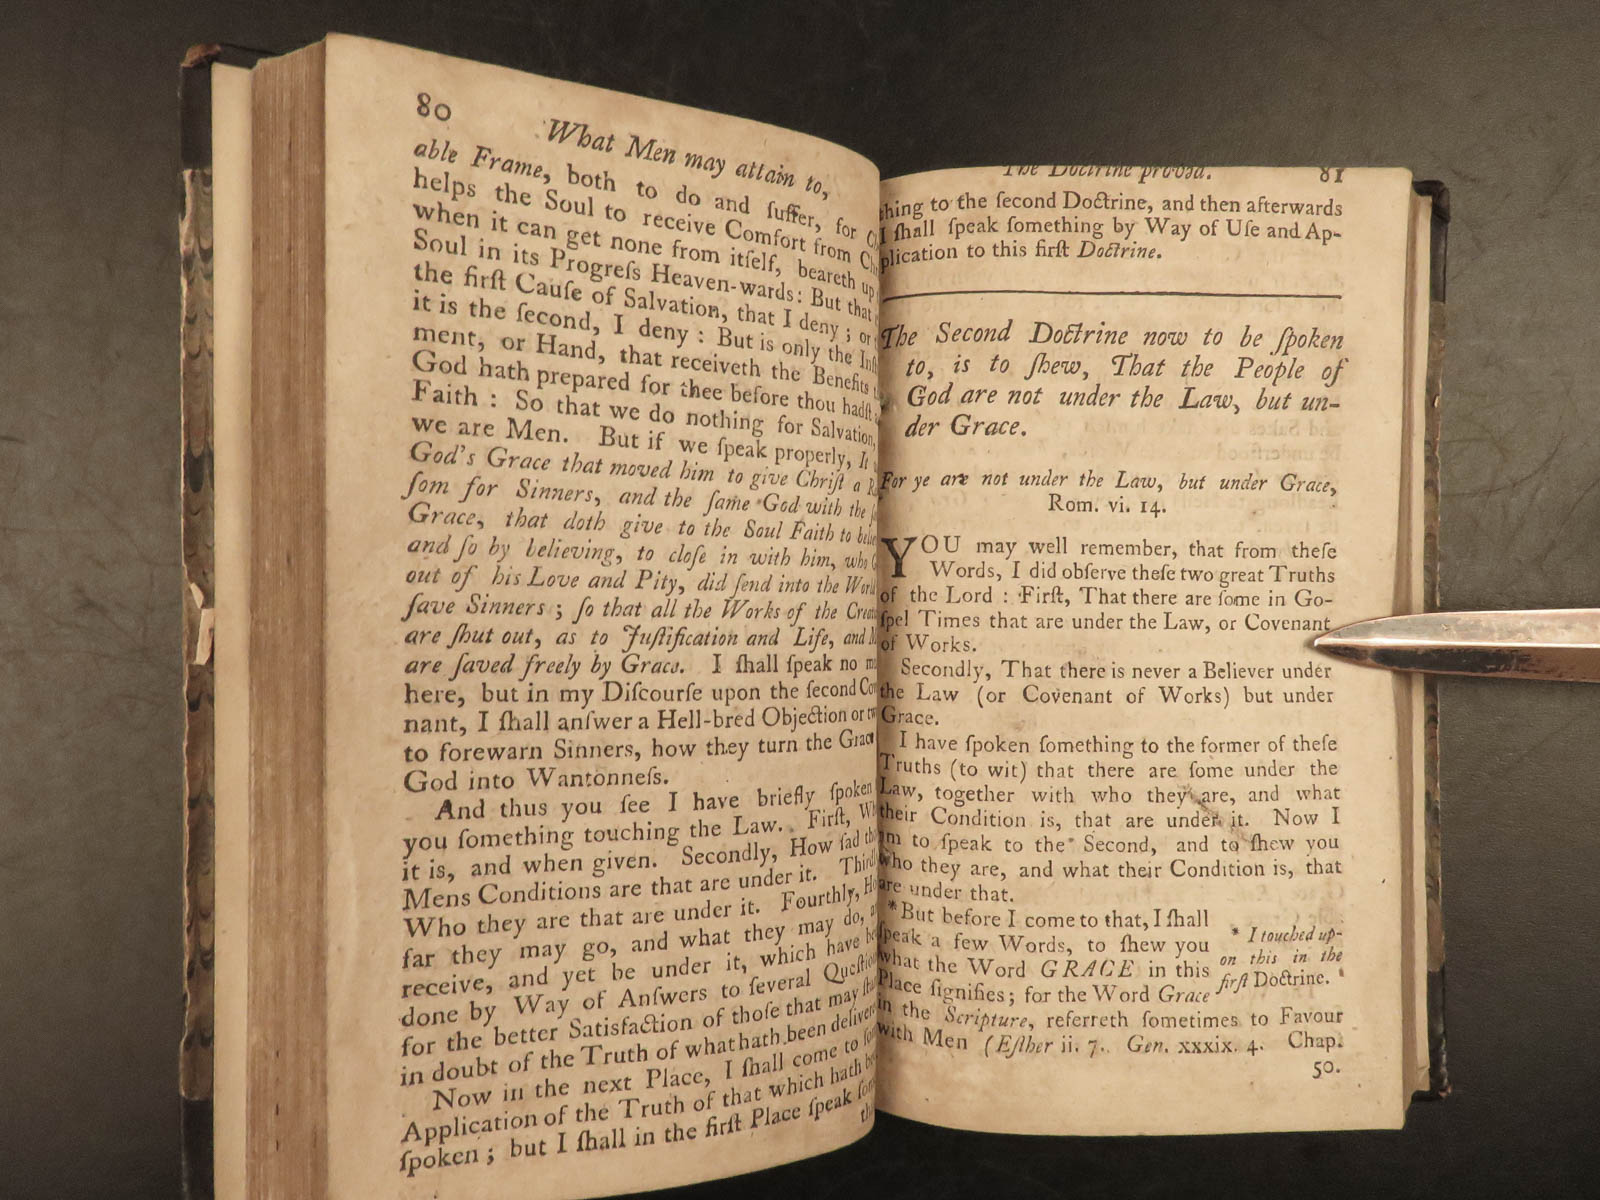 80
What Men may attain to,
able Frame, both to do and ſuffer, for
helps the Soul to receive Comfort from
when it can get none from itſelf, beareth up
Soul in its Progreſs Heaven-wards: But that
the firſt Cauſe of Salvation, that I deny; or
it is the ſecond, I deny: But is only the
ment, or Hand, that receiveth the Benefits
God hath prepared for thee before thou hadſt
Faith: So that we do nothing for Salvation,
we are Men. But if we ſpeak properly, It
God's Grace that moved him to give Chriſt a
ſom for Sinners, and the ſame God with the
Grace, that doth give to the Soul Faith to
and ſo by believing, to cloſe in with him, who
out of his Love and Pity, did ſend into the
ſave Sinners; ſo that all the Works of the
are ſhut out, as to Juſtification and Life, and
are ſaved freely by Grace. I ſhall ſpeak no
here, but in my Diſcourſe upon the ſecond
nant, I ſhall anſwer a Hell-bred Objection or
to forewarn Sinners, how they turn the
God into Wantonneſs.
And thus you ſee I have briefly ſpoken
you ſomething touching the Law. Firſt,
it is, and when given. Secondly, How ſad
Mens Conditions are that are under it.
Who they are that are under it. Fourthly,
far they may go, and what they may do,
receive, and yet be under it, which have
done by Way of Anſwers to ſeveral
for the better Satisfaction of thoſe that may
in doubt of the Truth of what hath been
Now in the next Place, I ſhall come to
Application of the Truth of that which hath
ſpoken; but I ſhall in the firſt Place ſpeak
The Doctrine proved. 81
thing to the ſecond Doctrine, and then afterwards
I ſhall ſpeak ſomething by Way of Uſe and Ap-
plication to this firſt Doctrine.
The Second Doctrine now to be ſpoken
to, is to ſhew, That the People of
God are not under the Law, but un-
der Grace.
For ye are not under the Law, but under Grace,
Rom. vi. 14.
YOU may well remember, that from theſe
Words, I did obſerve theſe two great Truths
of the Lord: Firſt, That there are ſome in Go-
ſpel Times that are under the Law, or Covenant
of Works.
Secondly, That there is never a Believer under
the Law (or Covenant of Works) but under
Grace.
I have ſpoken ſomething to the former of theſe
Truths (to wit) that there are ſome under the
Law, together with who they are, and what
their Condition is, that are under it. Now I
am to ſpeak to the Second, and to ſhew you
who they are, and what their Condition is, that
are under that.
*But before I come to that, I ſhall
ſpeak a few Words, to ſhew you
what the Word GRACE in this
Place ſignifies; for the Word Grace
* I touched up-
on this in the
firſt Doctrine.
in the Scripture, referreth ſometimes to Favour
with Men (Eſther ii. 7. Gen. xxxix. 4. Chap.
50.